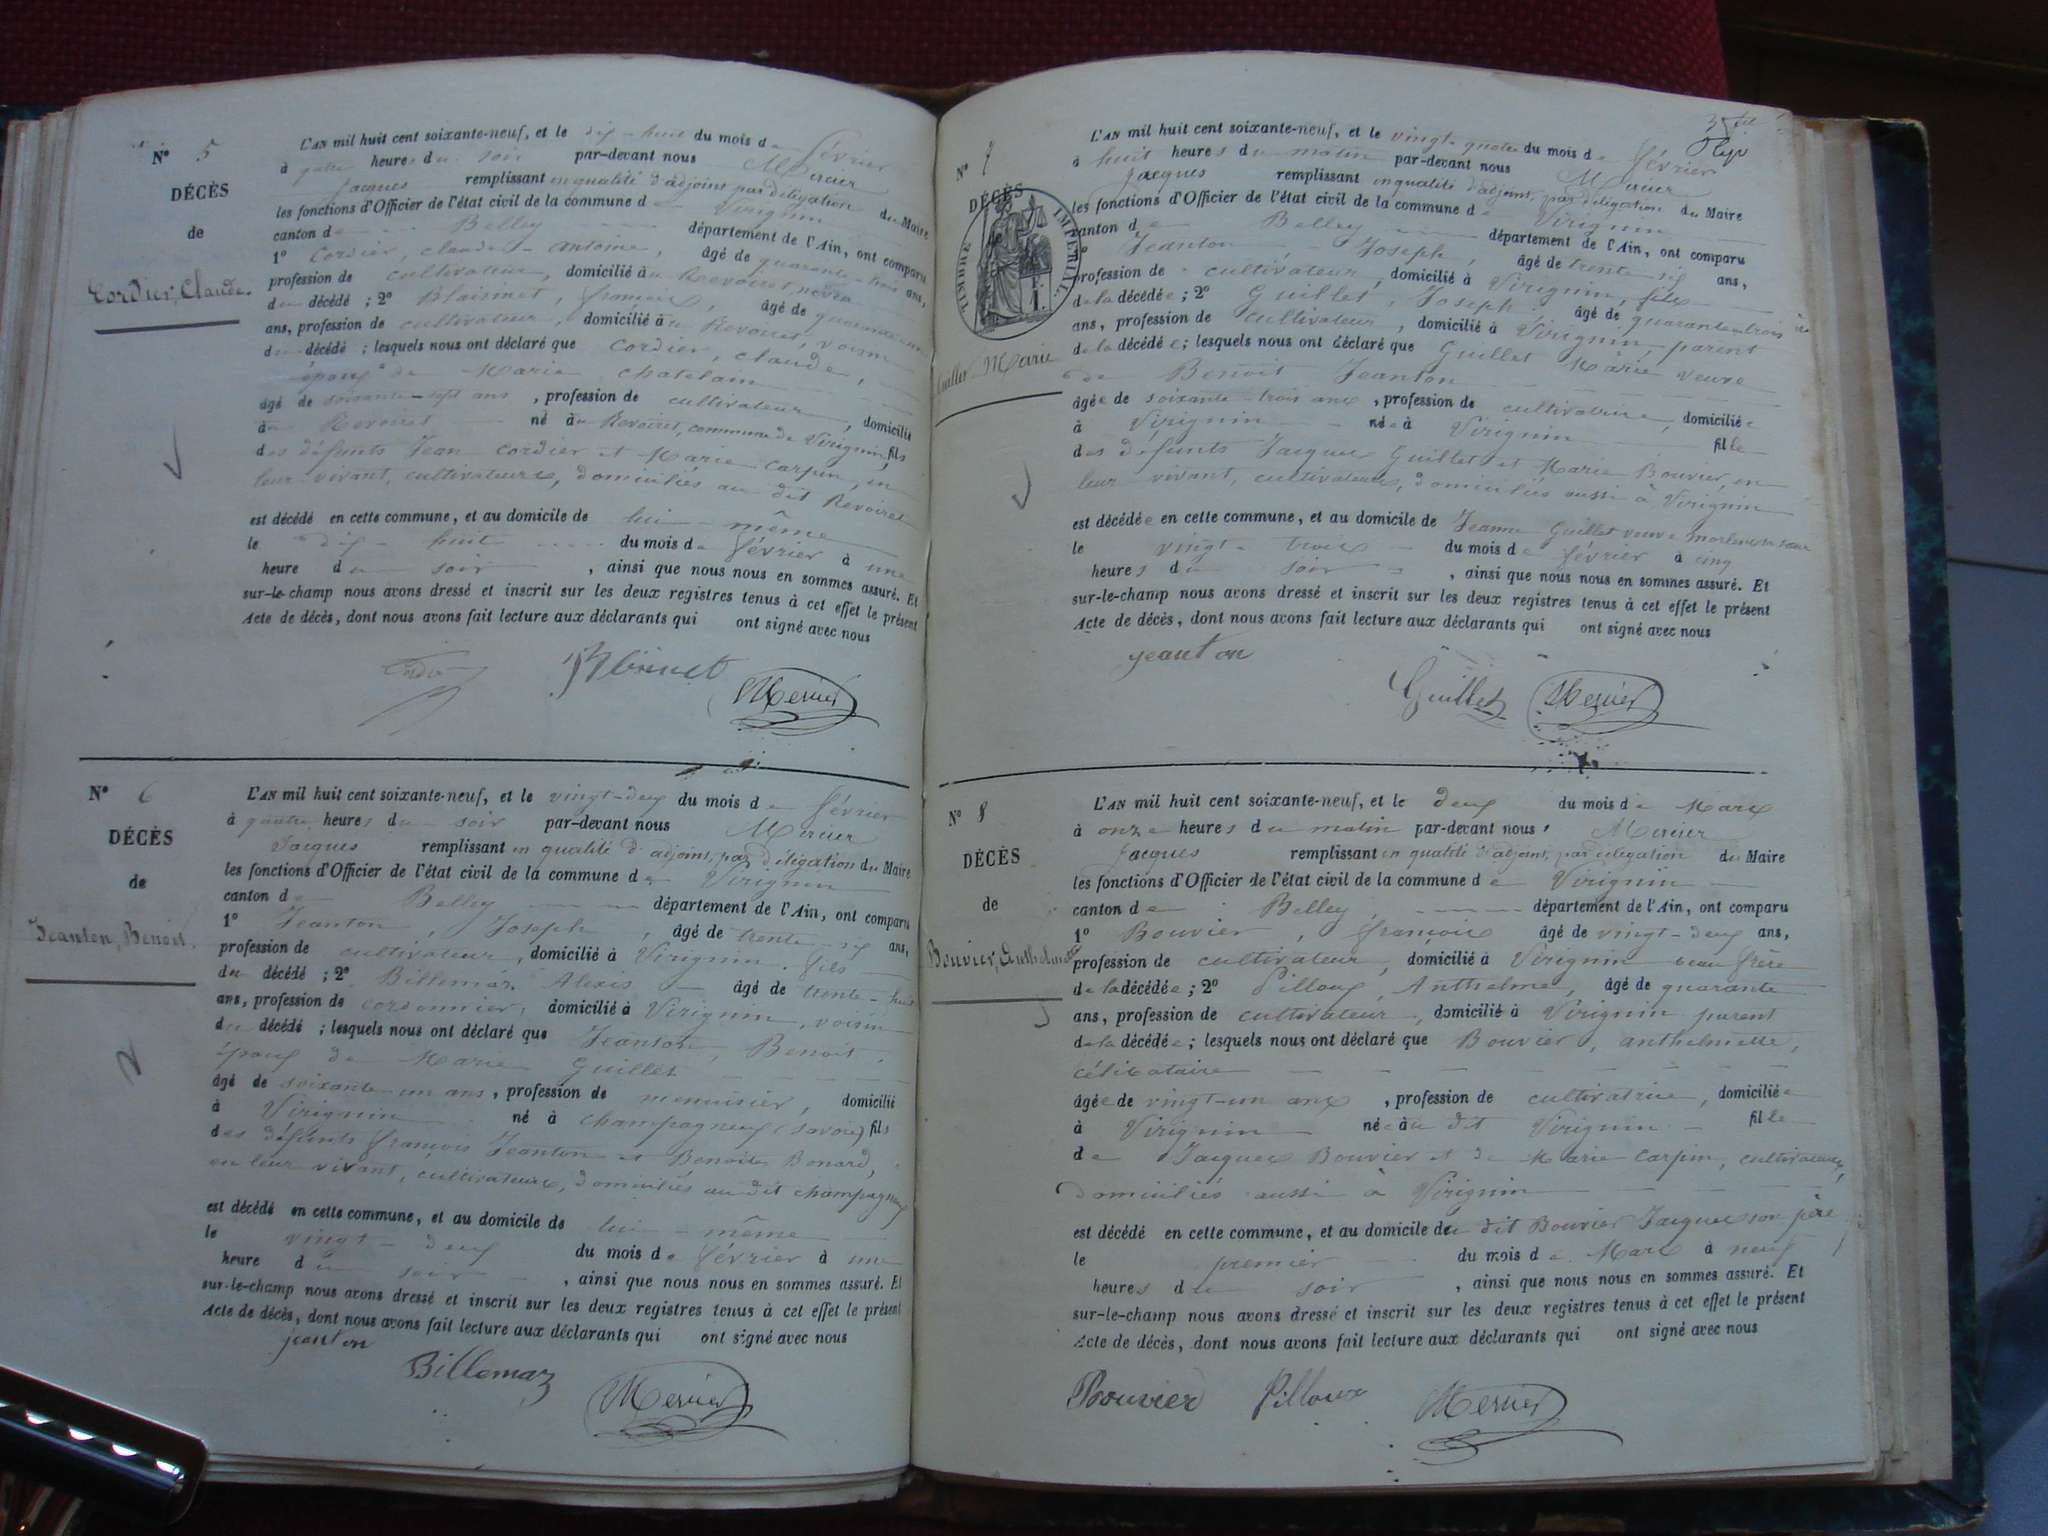 N° 5
DÉCÈS
de
Cordier, Claude.
L'AN mil huit cent soixante-neuf, et le dix-huit du mois de février
à quatre heures du soir par-devant nous Mercier
Jacques remplissant en qualité d'adjoint, par délégation du Maire
les fonctions d'Officier de l'état civil de la commune de Virignin
canton de Belley département de l'Ain, ont comparu
1° Cordier, claude-antoine, âgé de quarante-trois ans,
profession de cultivateur, domicilié au Revoiret, neveu
du décédé ; 2° Blaisinet, françois, âgé de
ans, profession de cultivateur, domicilié au Revoiret, voisin
du décédé ; lesquels nous ont déclaré que Cordier, claude,
époux de Marie chatelain
âgé de soixante-sept ans, profession de cultivateur, domicilié
au Revoiret né au Revoiret, commune de Virignin, fils
des défunts Jean Cordier et Marie Carpin, en
leur vivant, cultivateurs, domiciliés au dit Revoiret
est décédé en cette commune, et au domicile de lui-même
le dix-huit du mois de février à une
heure du soir, ainsi que nous nous en sommes assuré. Et
sur-le-champ nous avons dressé et inscrit sur les deux registres tenus à cet effet le présent
Acte de décès, dont nous avons fait lecture aux déclarants qui ont signé avec nous
Mercier
N° 6
DÉCÈS
de
Jeanton, Benoit.
L'AN mil huit cent soixante-neuf, et le vingt-deux du mois de février
à quatre heures du soir par-devant nous Mercier
Jacques remplissant en qualité d'adjoint, par délégation du Maire
les fonctions d'Officier de l'état civil de la commune de Virignin
canton de Belley département de l'Ain, ont comparu
1° Jeanton, Joseph, âgé de trente-six ans,
profession de cultivateur, domicilié à Virignin, fils
du décédé ; 2° Billemaz Alexis âgé de trente-huit
ans, profession de cordonnier, domicilié à Virignin, voisin
du décédé ; lesquels nous ont déclaré que Jeanton, Benoit,
époux de Marie Guillet
âgé de soixante-un ans, profession de menuisier, domicilié
à Virignin né à champagneux (savoie) fils
des défunts françois Jeanton et Benoite Bonard,
en leur vivant, cultivateurs, domiciliés au dit champagneux
est décédé en cette commune, et au domicile de lui-même
le vingt-deux du mois de février à une
heure du soir, ainsi que nous nous en sommes assuré. Et
sur-le-champ nous avons dressé et inscrit sur les deux registres tenus à cet effet le présent
Acte de décès, dont nous avons fait lecture aux déclarants qui ont signé avec nous
jeanton
Billemaz
Mercier
N° 7
DÉCÈS
TIMBRE IMPÉRIAL.
Guillet Marie
L'AN mil huit cent soixante-neuf, et le vingt-quatre du mois de février
à huit heures du matin par-devant nous Mercier
Jacques remplissant en qualité d'adjoint, par délégation du Maire
les fonctions d'Officier de l'état civil de la commune de Virignin
canton de Belley département de l'Ain, ont comparu
1° Jeanton, Joseph, âgé de trente six ans,
profession de cultivateur, domicilié à Virignin, fils
de la décédée ; 2° Guillet, Joseph âgé de quarante-trois
ans, profession de cultivateur, domicilié à Virignin, parent
de la décédée ; lesquels nous ont déclaré que Guillet Marie, veuve
de Benoit Jeanton
âgée de soixante-trois ans, profession de cultivatrice, domiciliée
à Virignin née à Virignin fille
des défunts Jacques Guillet et Marie Bouvier, en
leur vivant, cultivateurs, domiciliés aussi à Virignin
est décédée en cette commune, et au domicile de Jeanne Guillet veuve sa sœur
le vingt-trois du mois de février à cinq
heures du soir, ainsi que nous nous en sommes assuré. Et
sur-le-champ nous avons dressé et inscrit sur les deux registres tenus à cet effet le présent
Acte de décès, dont nous avons fait lecture aux déclarants qui ont signé avec nous
jeanton
Guillet Mercier
N° 8
DÉCÈS
de
Bouvier, Anthelmette
L'AN mil huit cent soixante-neuf, et le deux du mois de Mars
à onze heures du matin par-devant nous Mercier
Jacques remplissant en qualité d'adjoint, par délégation du Maire
les fonctions d'Officier de l'état civil de la commune de Virignin
canton de Belley, département de l'Ain, ont comparu
1° Bouvier, françois âgé de vingt-deux ans,
profession de cultivateur, domicilié à Virignin beau frère
de la décédée ; 2° Pilloux, Anthelme, âgé de quarante
ans, profession de cultivateur, domicilié à Virignin parent
de la décédée ; lesquels nous ont déclaré que Bouvier, anthelmette,
célibataire
âgée de vingt-un ans, profession de cultivatrice, domiciliée
à Virignin née au dit Virignin fille
de Jacques Bouvier et de Marie Carpin, cultivateurs,
domiciliés aussi à Virignin
est décédé en cette commune, et au domicile de dit Bouvier Jacques son père
le premier du mois de Mars à neuf
heures du soir, ainsi que nous nous en sommes assuré. Et
sur-le-champ nous avons dressé et inscrit sur les deux registres tenus à cet effet le présent
Acte de décès, dont nous avons fait lecture aux déclarants qui ont signé avec nous
Bouvier Pilloux Mercier